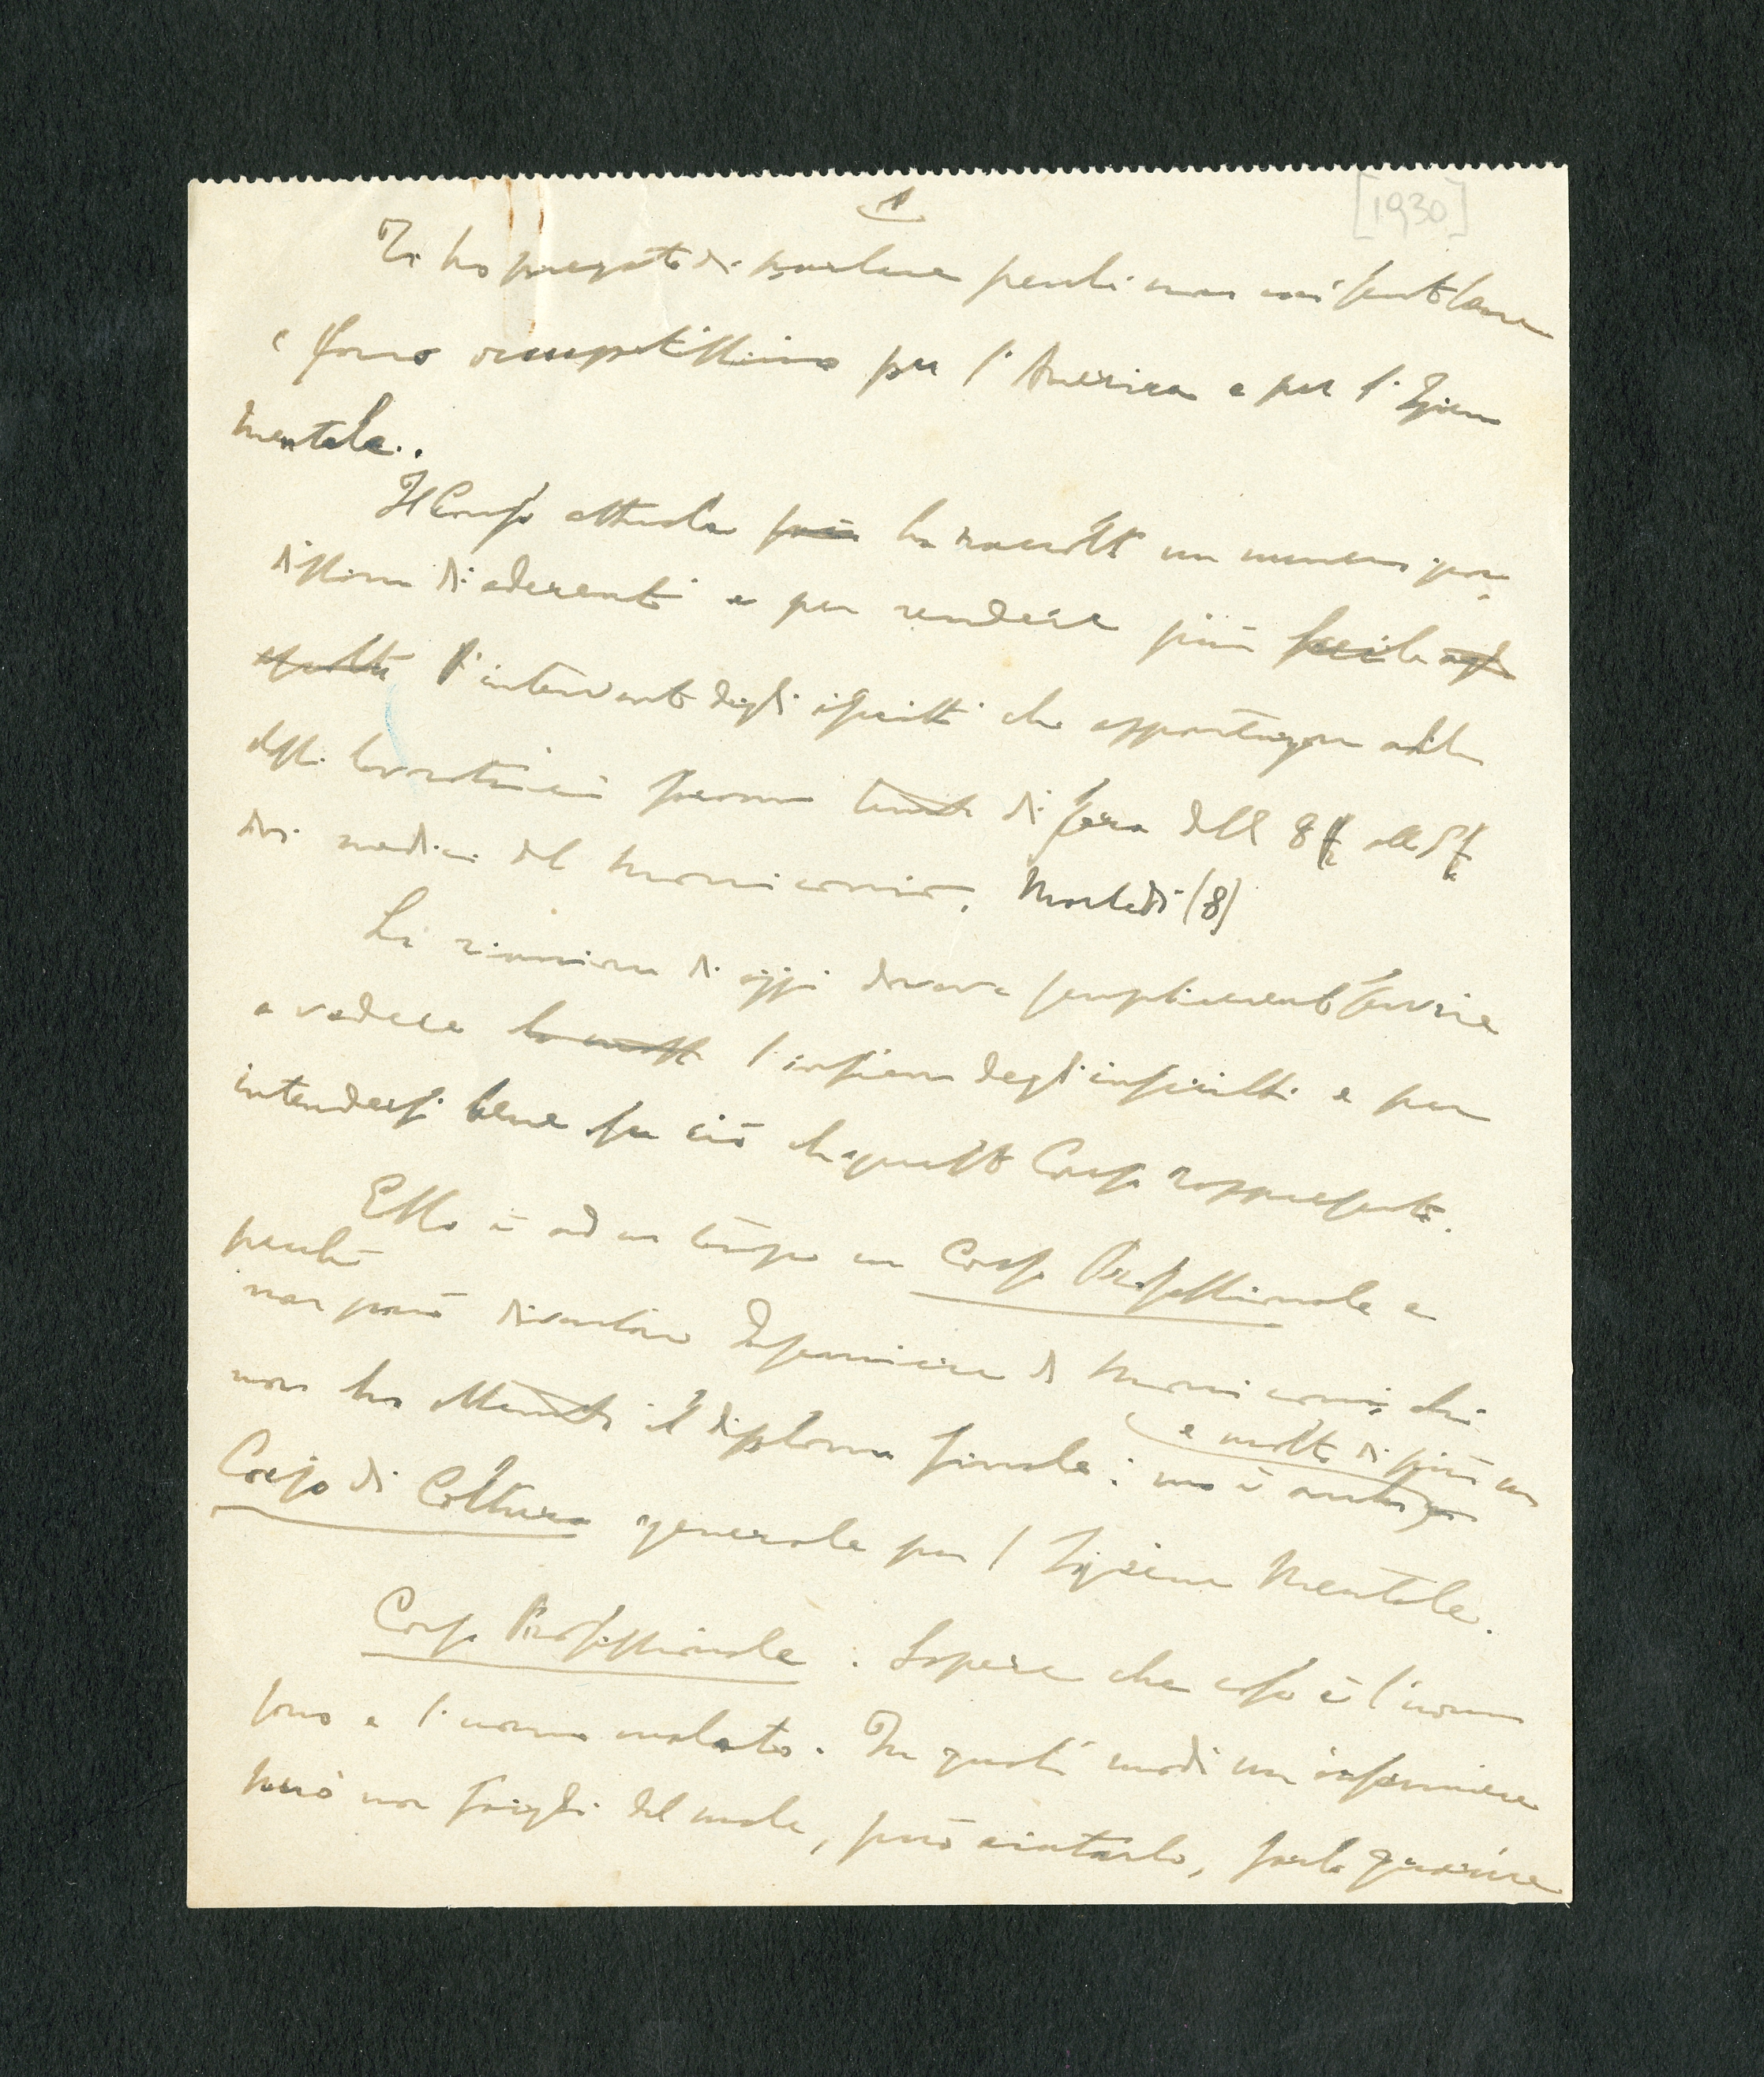 1
[1930]
Ti ho pregato di parlare perché non mi sento bene
e sono occupatissimo per l'America e per l'Igiene
mentale.
Il Corso attuale ha raccolto un numero gran-
dissimo di aderenti e per rendere più facile
l'intervento degli iscritti che appartengono alla
saranno tenute di sera dalle 8 1/2 alle 9 1/2
dai medici del Manicomio. Martedì (8)
La riunione di oggi doveva semplicemente servire
a vedere l'insieme degli inscritti e per
intendersi bene su ciò che questo Corso rappresenta.
Esso è ad un tempo un Corso Professionale e
perché
non può diventare Infermiere di Manicomio chi
non ha ottenuto il diploma finale: ma è anche
e molto di più un
Corso di Coltura generale per l'Igiene Mentale.
Corso Professionale: Sapere che cosa è l'uomo
sano e l'uomo malato. In quali modi un infermiere
può non fargli del male, può aiutarlo, farlo guarire